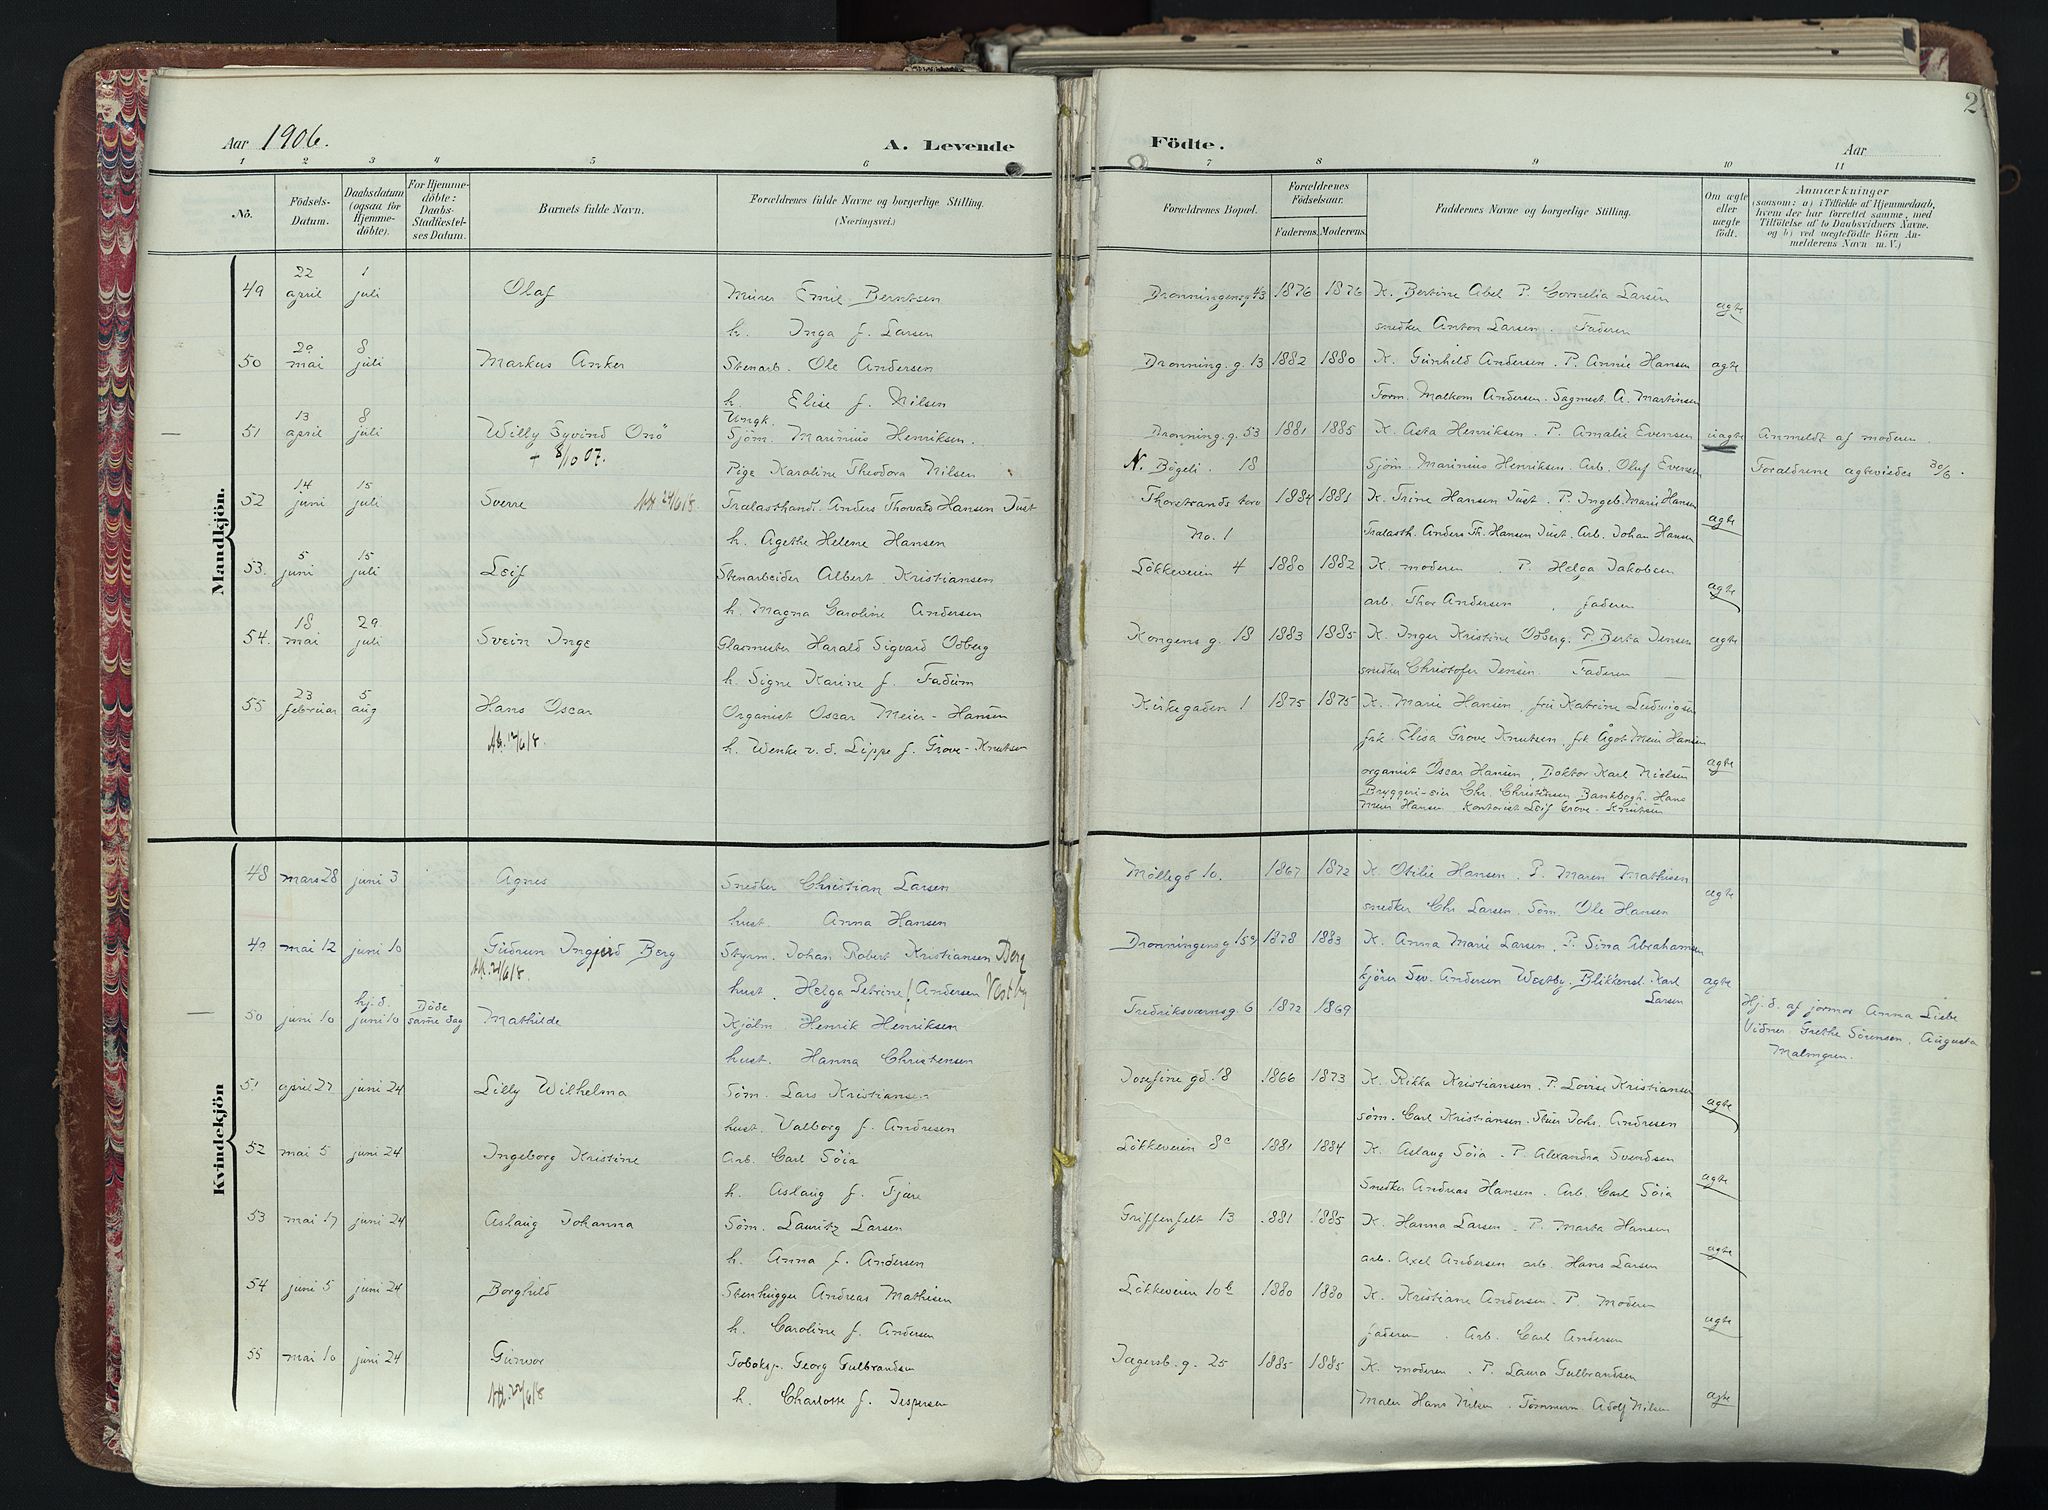 Aar 1906. A. Levende Födte. Aar 2
1 2 3 4 5 6 7 8 9 10 11
No. Födsels-Datum. Daabsdatum (ogsaa for Hjemme-döbte). For Hjemme-döbte: Daabs-Stadfæstel-ses Datum. Barnets fulde Navn. Forældrenes fulde Navne og borgerlige Stilling. (Næringsvei.) Forældrenes Bopæl. Forældrenes Födselsaar. Faderens. Moderens. Faddernes Navne og borgerlige Stilling. Om ægte eller uægte födt. Anmærkninger (saasom: a) i Tilfælde af Hjemmedaab, hvem der har forrettet samme, med Tilföielse af to Daabsvidners Navne. og b) ved uægtefödte Börn An-melderens Navn m. V.)
Mandkjön.
49 22 april 1 juli Olaf Murer Emil Berntsen Dronningensg 43 1876 1876 K. Bertine Abel P. Cornelia Larsen ægte
h. Inga f. Larsen snedker Anton Larsen. Faderen
50 29 mai 8 juli Markus Anker Stenarb. Ole Andersen Dronning. g. 13 1882 1880 K. Gunhild Andersen. P. Annie Hansen ægte
h. Elise f. Nilsen Form. Malkom Andersen. Sagmest. A. Martinsen
51 13 april 8 juli Willy Eyvind Onö Ungk. Sjöm. Marinius Henriksen. Dronning. g. 53 1881 1885 K. Asta Henriksen. P. Amalie Evensen uægte Anmeldt af moderen.
+ 8/10 07. Pige Karoline Theodora Nilsen N. Bögeli. 18 Sjöm. Marinius Henriksen. Arb. Oluf Evensen Forældrene ægteviedes 30/6.
52 14 juni 15 juli Sverre 24/6 18. Trælasthandl. Anders Thorvald Hansen Just Thorstrands torv 1884 1881 K. Trine Hansen Just. P. Ingeb. Marie Hansen ægte
h. Agethe Helene Hansen No. 1 Trælasth. Anders Th. Hansen Just. Arb. Johan Hansen
53. 5 juni 15 juli Leif Stenarbeider Albert Kristiansen Lökkeveien 4 1880 1882 K. moderen. P. Helga Jakobsen ægte
h. Magna Caroline Andersen arb. Thor Andersen, faderen
54. 18 mai 29 juli Svein Inge Glasmester Harald Sigvard Odberg Kongens g. 18 1883 1885 K. Inger Kristine Odberg. P. Berta Jensen ægte
h. Signe Karine f. Fadum snedker Christofer Jensen. Faderen
55 23 februar 5 aug Hans Oscar Organist Oscar Meier-Hansen Kirkegaden 1 1875 1875 K. Marie Hansen, fru Katrine Ludwigsen
12/6 18. h. Wenke v. d. Lippe f. Grove-Knutsen frk Elisa Grove Knutsen. frk Ågot Meier Hansen
organist Oscar Hansen, Doktor Karl Nielsen ægte
Bryggeri-eier Chr. Christensen Bankbogh. Hans
Meier Hansen. Kontorist Leif Grove-Knutsen
Kvindekjön
48 mars 28 juni 3 Agnes Snedker Christian Larsen Möllegd 10. 1867 1872 K. Otilie Hansen. P. Maren Mathisen ægte
hust. Anna Hansen snedker Chr Larsen. Söm. Ole Hansen
49 mai 12 juni 10 Gudrun Ingjerd Berg Styrm. Johan Robert Kristiansen Berg Dronningensg 15a 1878 1883 K. Anna Marie Larsen. P. Sina Abrahamsen
21/6 18. hust. Helga Petrine f. Andersen Vestby kjörer Sev. Andersen Westby. Blikkensl. Karl Larsen ægte
50 juni 10 hj. d. juni 10 Döde samme dag Mathilde Kjölm. Henrik Henriksen Fredriksværnsg. 6 1872 1869 Hj. d. af jormor Anna Liebe
hust. Hanna Christensen Vidner. Grethe Sörensen, Augusta Malmgren.
51 april 27 juni 24 Lilly Wilhelma Söm. Lars Kristiansen Josefine gd. 18 1866 1873 K. Rikka Kristiansen. P. Lovise Kristiansen ægte
hust. Valborg f. Andresen söm. Carl Kristiansen. Stuer Johs. Andresen
52 mai 5 juni 24 Ingeborg Kristine Arb. Carl Söia Lökkeveien 8c 1881 1884 K. Aslaug Söia. P. Alexandra Svendsen ægte
h. Aslaug f. Fjære Snedker Andreas Hansen. Arb. Carl Söia
53 mai 17 juni 24 Aslaug Johanna Söm. Lauritz Larsen Griffenfelt 13 1881 1885 K. Hanna Larsen. P. Marta Hansen ægte
h. Anna f. Andersen arb. Axel Andersen arb. Hans Larsen
54 juni 5 juni 24 Borghild Stenhugger Andreas Mathisen Lökkeveien 10b 1880 1880 K. Kristiane Andersen. P. Moderen ægte
h. Caroline f. Andersen faderen. Arb. Carl Andersen
55 mai 10 juni 24 Gunvor Tobaksp. Georg Gulbrandsen Jagersb. g. 25 1885 1885 K. moderen. P. Laura Gulbrandsen
22/6 18 h. Charlotte f. Jespersen Maler Hans Nilsen. Tömmerm. Adolf Nilsen ægte